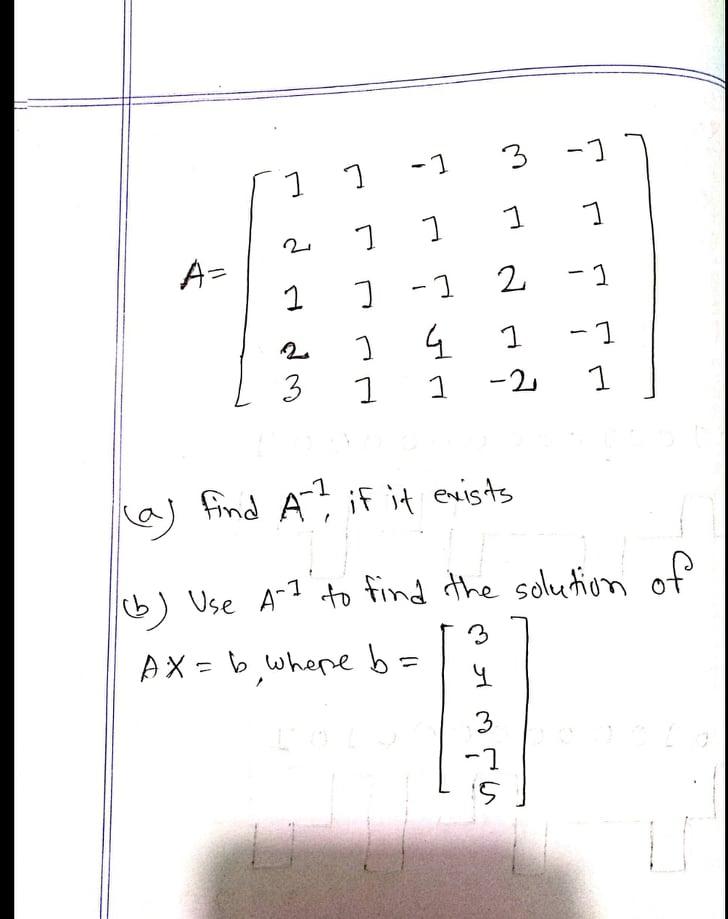 A= [ 1 1 -1 3 -1
2 1 1 1 1
1 1 -1 2 -1
2 1 4 1 -1
3 1 1 -2 1 ]
(a) find A⁻¹, if it exists
(b) Use A⁻¹ to find the solution of
AX = b, where b = [ 3
4
3
-1
5 ]